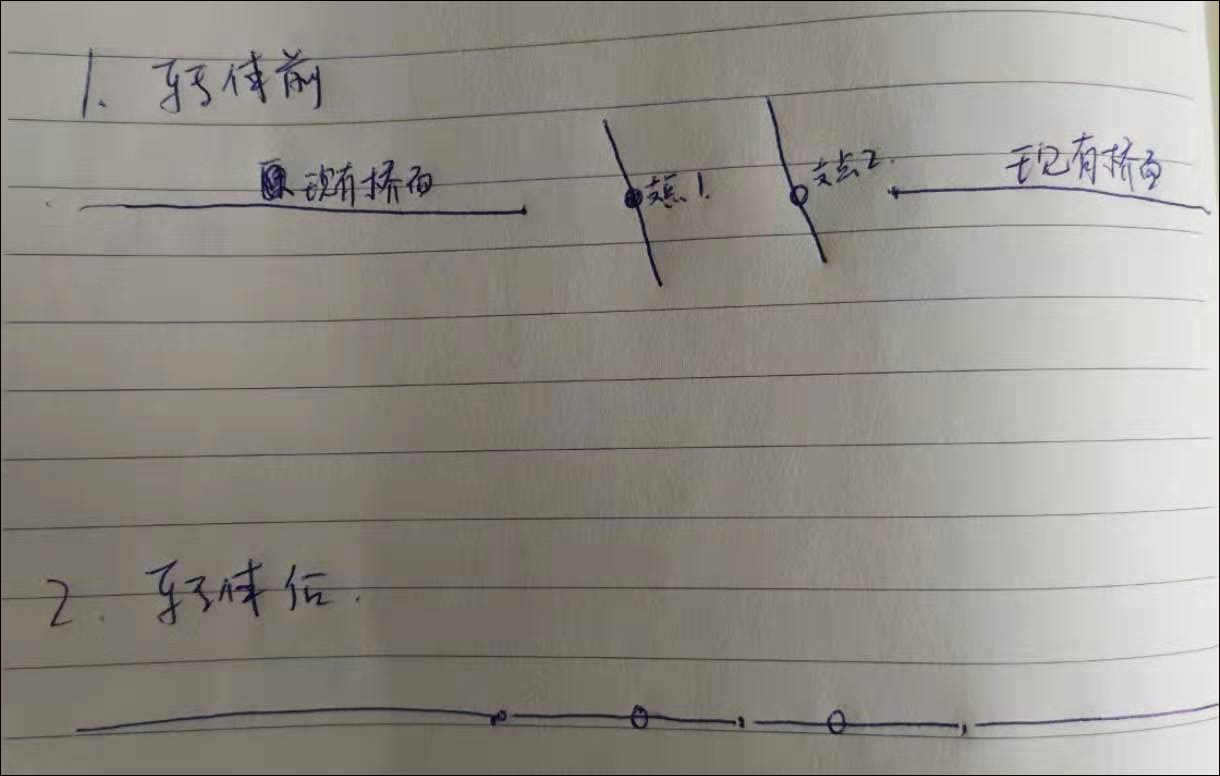 1. 转体前
现有桥面
支点1.
支点2.
现有桥面
2. 转体后.